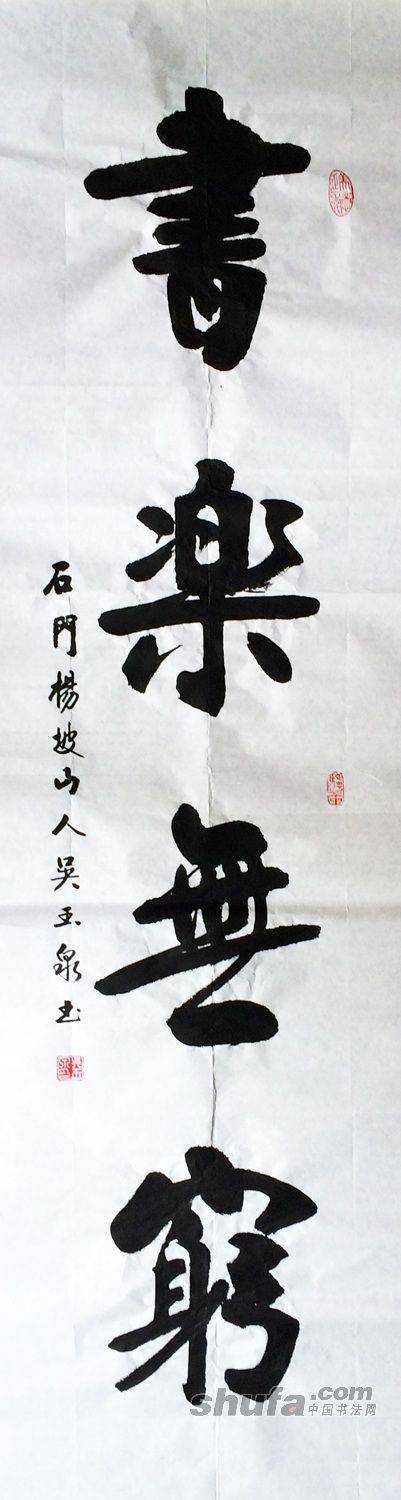 書楽無窮
石門楊坡山人吴玉泉书
shufa.com
中国书法网